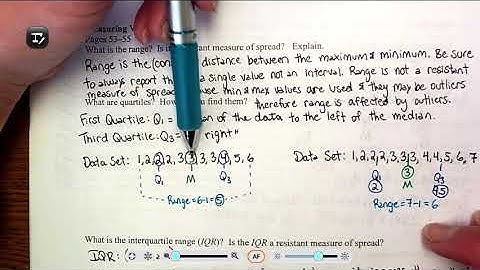 Measuring
Pages 53-55
What is the range? Is it a resistant measure of spread? Explain.
Range is the distance between the maximum & minimum. Be sure
to always report the a single value not an interval. Range is not a resistant
measure of spread use min & max values are used & they may be outliers
What are quartiles? How you find them? therefore range is affected by outliers.
First Quartile: Q₁ = of the data to the left of the median.
Third Quartile: Q₃ = right"
Data Set: 1, 2, 2, 2, 3, 3, 3, 3, 4, 5, 6
Data Set: 1, 2, 2, 2, 3, 3, 3, 4, 4, 5, 6, 7
Q₁ M Q₃
Q₁ M Q₃
2 3 4.5
Range=6-1=5
Range=7-1=6
What is the interquartile range (IQR)? Is the IQR a resistant measure of spread?
IQR:
AF